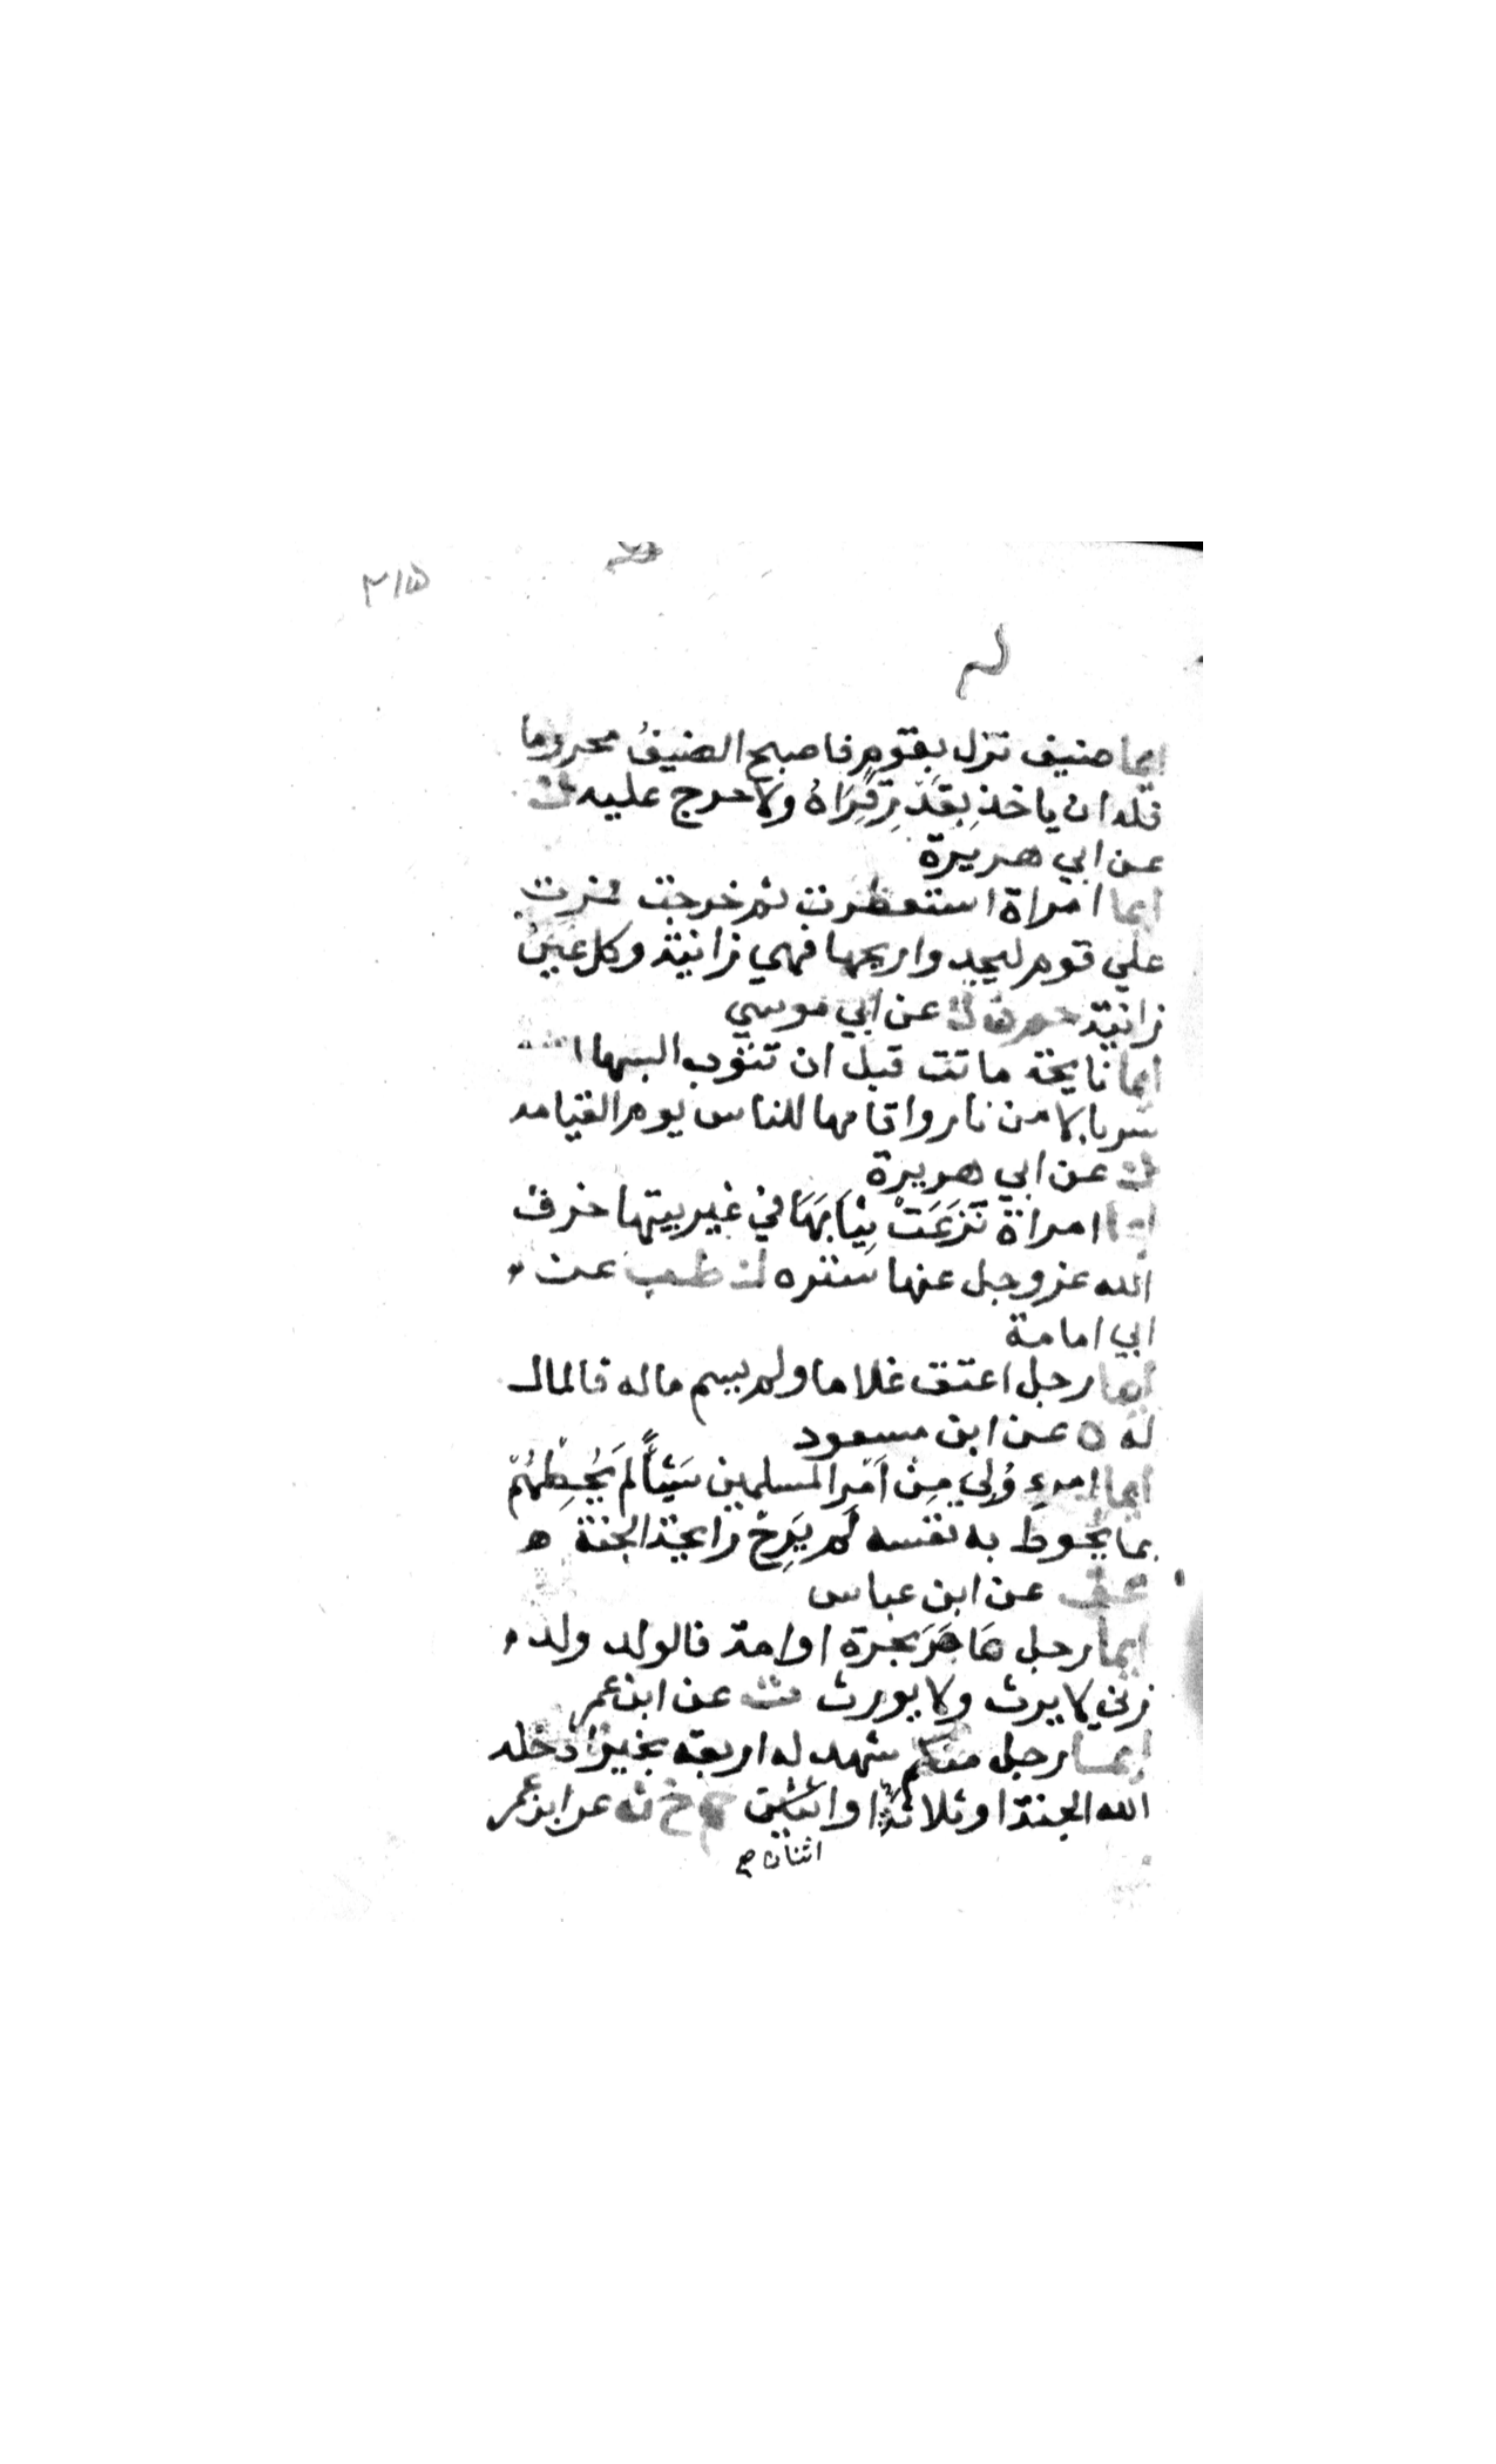 ٣١٥
ايما ضيف نزل بقوم فاصبح الضيفُ محروما
فله ان ياخذ بِقَدْرِ قِرَاهُ ولا حرج عليه ك
عن ابي هريرة
ايما امراة استعطرت ثم خرجت فمرت
علي قوم ليجدوا ريحها فهي زانية وكل عين
زانية حم ن ك عن ابي موسي
ايما نايحة ماتت قبل ان تتوب البسها الله
سربالا من نار واقامها للناس يوم القيامه
عن ابي هريرة
ايما امراة نَزَعَتْ ثِيَابَهَا في غير بيتها خرق
الله عز وجل عنها ستره ك طب عن
ابي امامة
ايما رجل اعتق غلاما ولم يسم ماله فالمال
له ه عن ابن مسعود
ايما امرءٍ وُلِيَ مِنْ اَمْرِ المسلمين شَيْأً لَمْ يَحُطْهُمْ
بما يَحُوطُ به نفسه لم يَرِحْ رايحة الجنة ه
عق عن ابن عباس
ايما رجل عَاهَرَ بحرة او امة فالولد ولد
زني لا يرث ولا يورث ت عن ابن عمر
ايما رجل منكم شهد له اربعة بخير ادخله
الله الجنة او ثلاثة او اثنين حم خ ن عن ابن عمر
اثنان صح